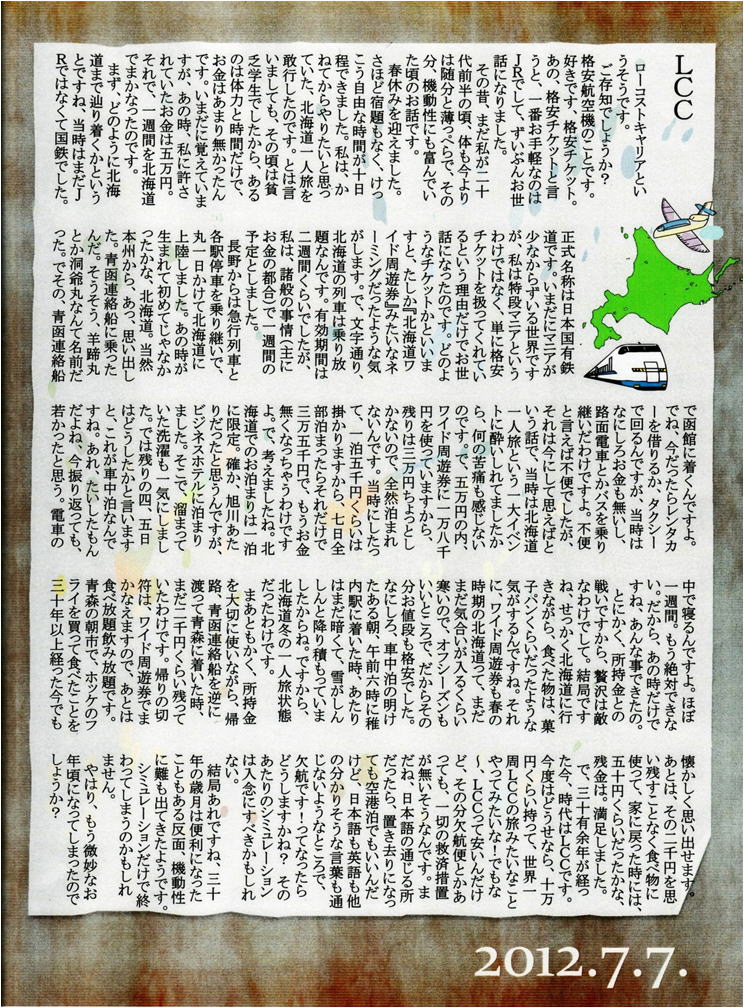 LCC
ローコストキャリアとい
うそうです。
ご存知でしょうか？
格安航空機のことです。
好きです。格安チケット。
あの、格安チケットと言
うと、一番お手軽なのは
JRでして、ずいぶんお世
話になりました。
その昔、まだ私が二十
代前半の頃、体も今より
は随分と薄っぺらで、その
分、機動性にも富んでい
た頃のお話です。
春休みを迎えました。
さほど宿題もなく、けっ
こう自由な時間が十日
程できました。私は、か
ねてからやりたいと思っ
ていた、北海道一人旅を
敢行したのです。とは言
いましても、その頃は貧
乏学生でしたから、ある
のは体力と時間だけで、
お金はあまり無かったん
です。いまだに覚えていま
すが、あの時、私に許さ
れていたお金は五万円。
それで、一週間を北海道
でまかなったのです。
まず、どのように北海
道まで辿り着くかという
とですね、当時はまだJ
Rではなくて国鉄でした。
正式名称は日本国有鉄
道です。いまだにマニアが
少なからずいる世界です
が、私は特段マニアという
わけではなく、単に格安
チケットを扱ってくれてい
るという理由だけでお世
話になったのです。どのよ
うなチケットかといいま
すと、たしか『北海道ワ
イド周遊券』みたいなネ
ーミングだったような気
がします。で、文字通り、
北海道の列車は乗り放
題なんです。有効期間は
二週間くらいでしたが、
私は、諸般の事情（主に
お金の都合）で一週間の
予定としました。
長野からは急行列車と
各駅停車を乗り継いで、
丸一日かけて北海道に
上陸しました。あの時が
生まれて初めてじゃなか
ったかな、北海道。当然
本州から、あっ、思い出し
た。青函連絡船に乗った
んだ。そうそう、羊蹄丸
とか洞爺丸なんて名前だ
った。でその、青函連絡船
で函館に着くんですよ。
でね、今だったらレンタカ
ーを借りるか、タクシー
で回るんですが、当時は
なにしろお金も無いし、
路面電車とかバスを乗り
継いだわけですよ。不便
と言えば不便でしたが、
それは今にして思えばと
いう話で、当時は北海道
一人旅という 大イベン
トに酔いしれてましたか
ら、何の苦痛も感じない
のです。で、五万円の内、
ワイド周遊券に一万八千
円を使っていますから、
残りは三万円ちょっとし
かないので、全然泊まれ
ないんです。当時にしたっ
て、一泊五千円くらいは
掛かりますから、七日全
部泊まったらそれだけで
三万五千円で、もうお金
無くなっちゃうわけです
よ。で、考えましたね。北
海道でのお泊まりは一泊
に限定。確か、旭川あた
りだったと思うんですが、
ビジネスホテルに泊まり
ました。そこで、溜まって
いた洗濯も一気にしまし
た。では残りの四、五日
はどうしたかと言います
と、これが車中泊なんで
すね。あれ、たいしたもん
だよね、今振り返っても、
若かったと思う。電車の
中で寝るんですよ。ほぼ
一週間。もう絶対できな
い。だから、あの時だけで
すね、あんな事できたの。
とにかく、所持金との
戦いですから、贅沢は敵
なわけでして。結局です
ね、せっかく北海道に行
きながら、食べた物は、菓
子パンくらいだったような
気がするんですね。それ
に、ワイド周遊券も春の
時期の北海道って、まだ
まだ気合いが入るくらい
寒いので、オフシーズンも
いいところで、だからその
分お値段も格安でした。
なにしろ、車中泊の明け
たある朝、午前六時に稚
内駅に着いた時、あたり
はまだ暗くて、雪がしん
しんと降り積もっていま
したからね。ですから、
北海道冬の一人旅状態
だったわけです。
まあともかく、所持金
を大切に使いながら、帰
路、青函連絡船を逆に
渡って青森に着いた時、
まだ二千円くらい残って
いたわけです。帰りの切
符は、ワイド周遊券でま
かなえますので、あとは
食べ放題飲み放題です。
青森の朝市で、ホッケのフ
ライを買って食べたことを
三十年以上経った今でも
懐かしく思い出せます。
あとは、その二千円を思
い残すことなく食べ物に
使って、家に戻った時には、
五十円くらいだったかな、
残金は。満足しました。
で、三十有余年が経っ
た今、時代はLCCです。
今度はどうせなら、十万
円くらい持って、世界一
周LCCの旅みたいなこと
やってみたいな！でもな
～、LCCって安いんだけ
ど、その分欠航便とかあ
っても、一切の救済措置
が無いそうなんです。ま
だね、日本語の通じる所
だったら、置き去りになっ
ても空港泊でもいいんだ
けど、日本語も英語も他
の分かりそうな言葉も通
じないようなところで、
欠航です！ってなったら
どうしますかね？その
あたりのシミュレーション
は入念にすべきかもしれ
ない。
結局あれですね、三十
年の歳月は便利になった
こともある反面、機動性
に難も出てきたようです。
シミュレーションだけで終
わってしまうのかもしれ
ません。
やはり、もう微妙なお
年頃になってしまったので
しょうか？
2012.7.7.